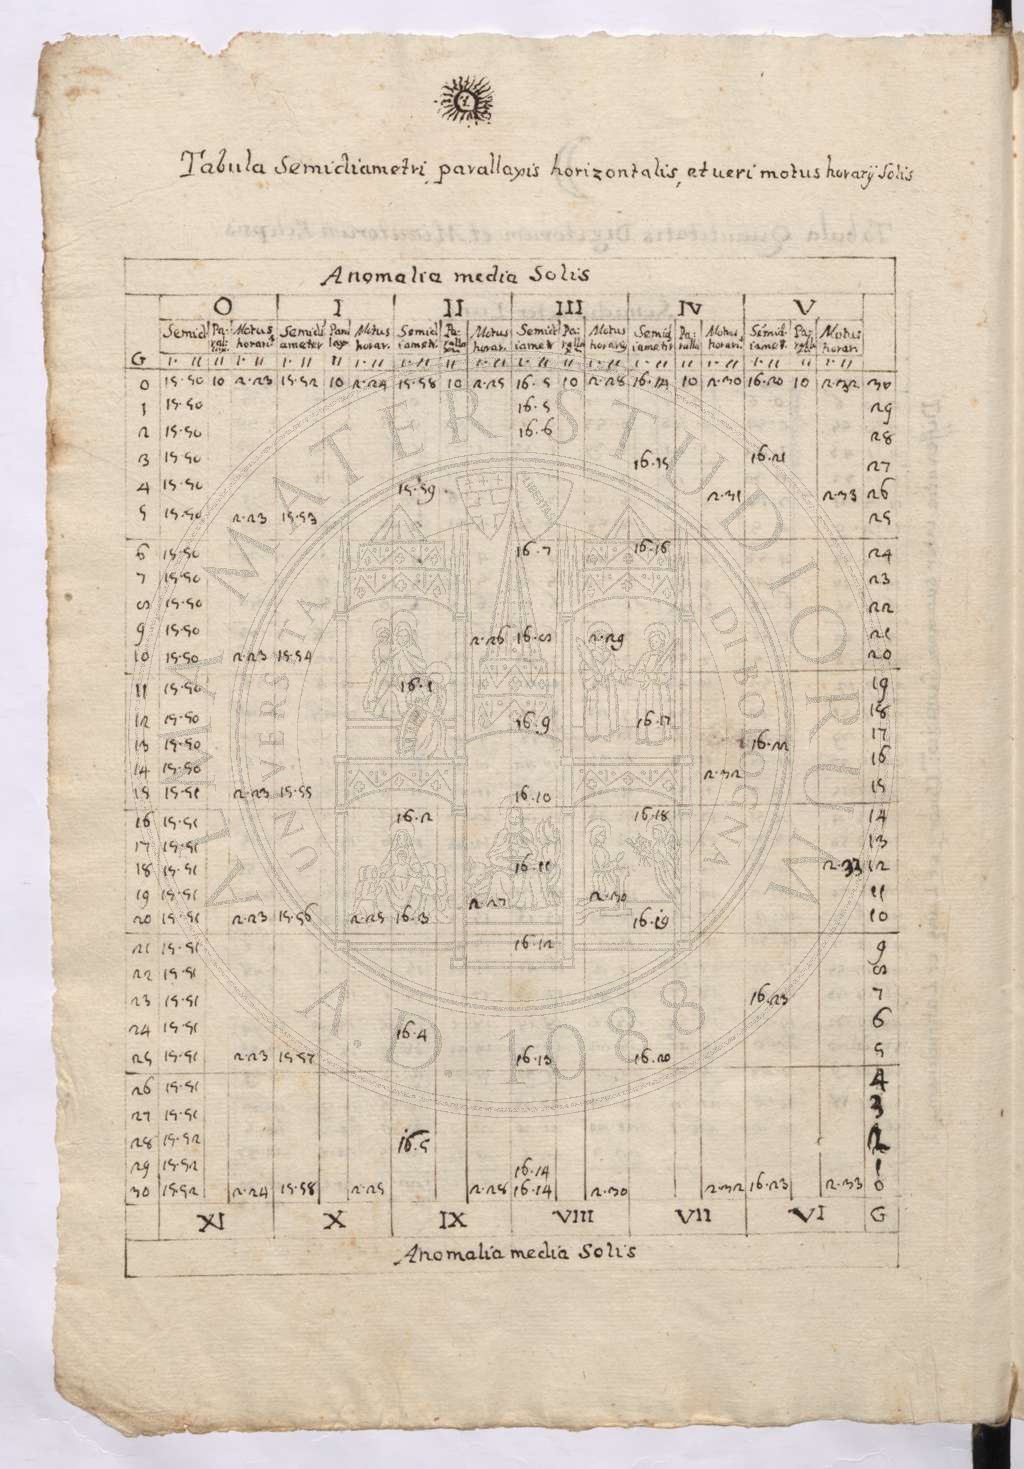 Tabula Semidiametri, parallaxis horizontalis, et ueri motus horarij Solis
Anomalia media Solis
0 I II III IV V
Semid Pa: ral: Motus horari Semidi ameter Para laxis Motus horar. Semid iametr. Pa: ralla Motus horar. Semid iametr Pa: ralla Motus horarij Semid iametri Pa: ralla Motus horari. Semid iametr. Par: ralla Motus horar.
G ı. ıı ıı ı. ıı ı. ıı ıı ı. ıı ı. ıı ıı ı. ıı ı. ıı ıı ı. ıı ı. ıı ıı ı. ıı ı. ıı ıı ı. ıı
0 15.50 10 2.23 15.52 10 2.24 15.58 10 2.25 16.5 10 2.28 16.14 10 2.30 16.20 10 2.32 30
1 15.50 16.5 29
2 15.50 16.6 28
3 15.50 16.15 16.21 27
4 15.50 15.59 2.31 2.33 26
5 15.50 2.23 15.53 25
6 15.50 16.7 16.16 24
7 15.50 23
8 15.50 22
9 15.50 2.26 16.8 2.29 21
10 15.50 2.23 15.54 20
11 15.50 16.1 19
12 15.50 16.9 16.17 18
13 15.50 16.22 17
14 15.50 2.32 16
15 15.51 2.23 15.55 16.10 15
16 15.51 16.2 16.18 14
17 15.51 13
18 15.51 16.11 2.33 12
19 15.51 2.27 2.30 11
20 15.51 2.23 15.56 2.25 16.3 16.19 10
21 15.51 16.12 9
22 15.51 8
23 15.51 16.23 7
24 15.51 16.4 6
25 15.51 2.23 15.57 16.13 16.20 5
26 15.51 4
27 15.51 3
28 15.52 16.5 2
29 15.52 16.14 1
30 15.52 2.24 15.58 2.25 2.28 16.14 2.30 2.32 16.23 2.33 0
XI X IX VIII VII VI G
Anomalia media Solis
ALMA MATER STUDIORUM
UNIVERSITA DI BOLOGNA
A.D. 1088